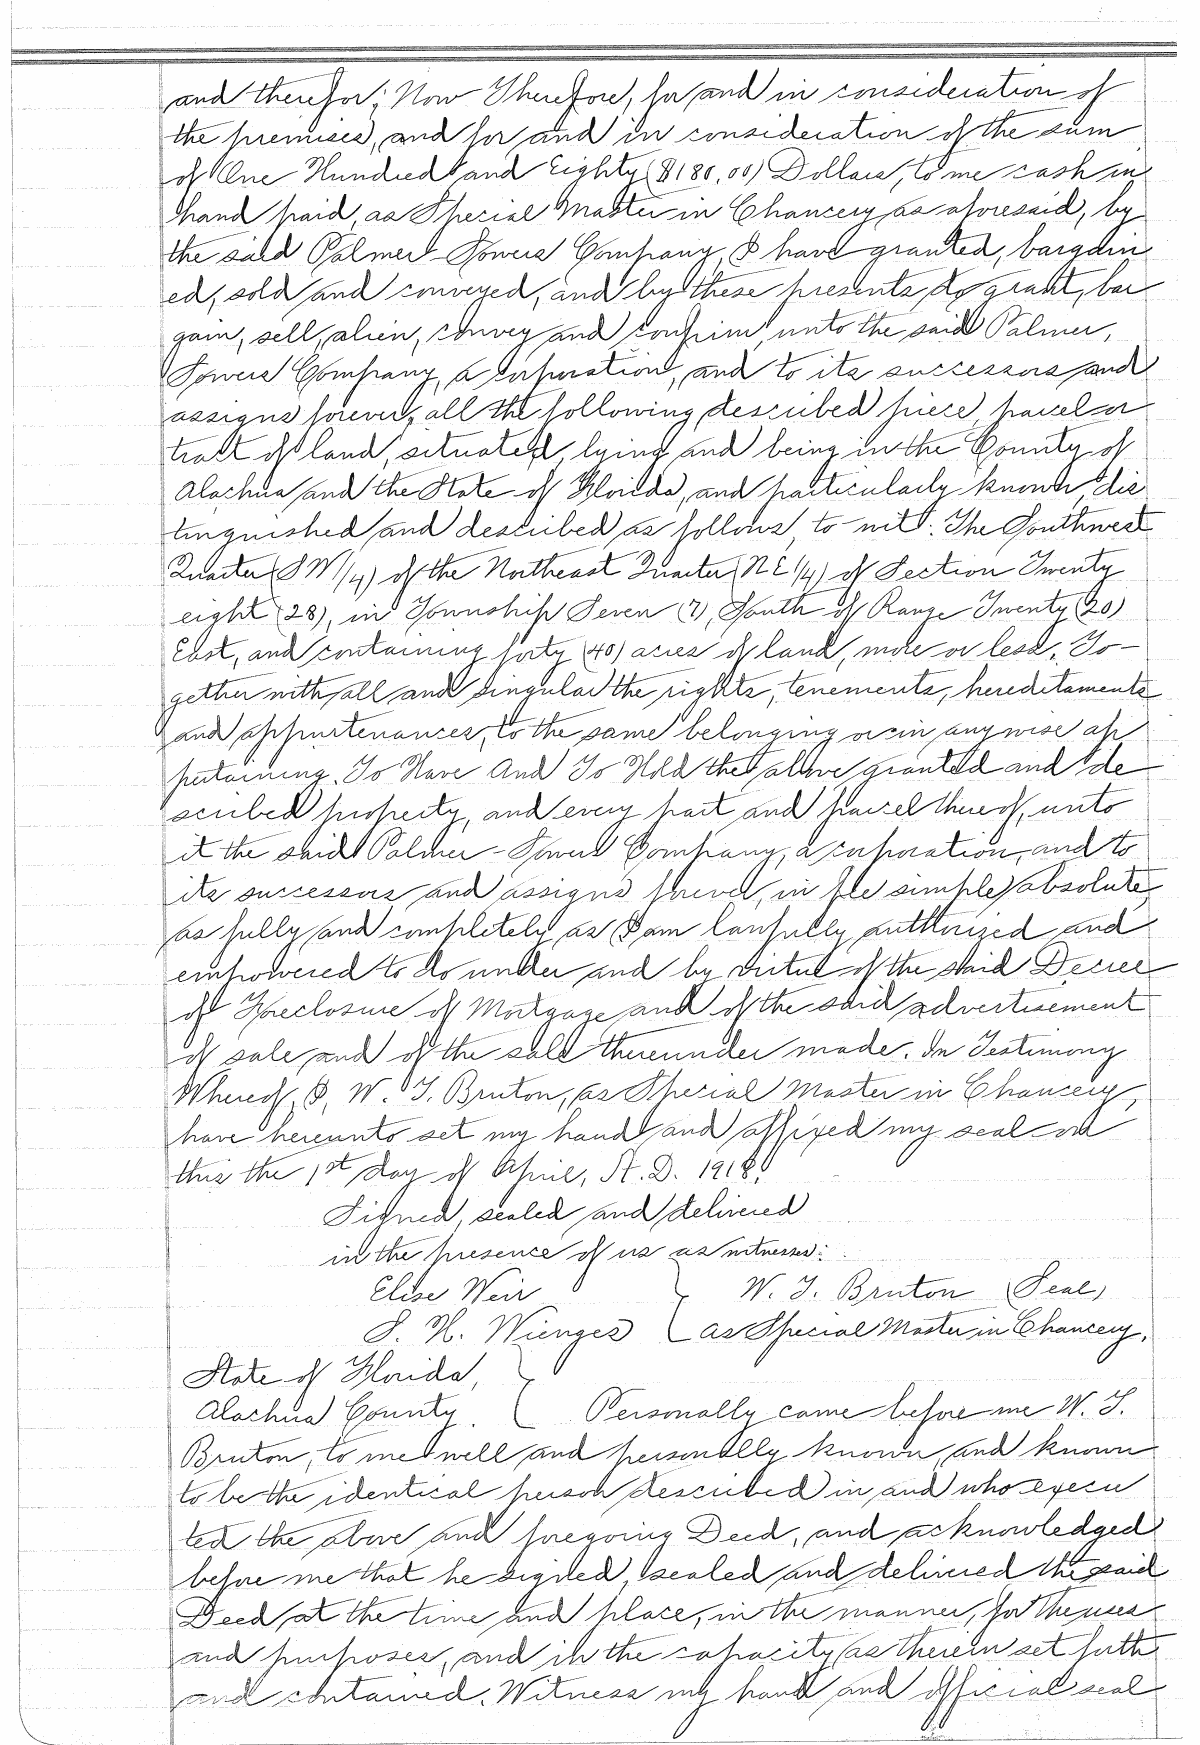 and therefor; Now Therefore, for and in consideration of
the premises, and for and in consideration of the sum
of One Hundred and Eighty ($180,00) Dollars, to me cash in
hand paid, as Special Master in Chancery as aforesaid, by
the said Palmer-Towers Company, I have granted, bargain
ed, sold and conveyed, and by these presents do grant, bar
gain, sell, alien, convey and confirm unto the said Palmer,
Towers Company, a corporation, and to its successors and
assigns forever, all the following described piece, parcel or
tract of land, situated, lying and being in the County of
Alachua and the State of Florida, and particularly known, dis
tinguished and described as follows, to-wit: The Southwest
Quarter (SW1/4) of the Northeast Quarter (NE1/4) of Section Twenty
eight (28), in Township Seven (7), South of Range Twenty (20)
East, and containing forty (40) acres of land, more or less. To-
gether with all and singular the rights, tenements, hereditaments
and appurtenances, to the same belonging or in anywise ap
pertaining. To Have And To Hold the above granted and de
scribed property, and every part and parcel thereof, unto
it the said Palmer-Towers Company, a corporation, and to
its successors and assigns forever, in fee simple absolute,
as fully and completely as I am lawfully authorized and
empowered to do under and by virtue of the said Decree
of Foreclosure of Mortgage and of the said advertisement
of sale and of the sale thereunder made. In Testimony
Whereof, I, W. T. Bruton, as Special Master in Chancery,
have hereunto set my hand and affixed my seal on
this the 1st day of April, A. D. 1918.
Signed, sealed and delivered
in the presence of us as witnesses:
Elise Weir } W. T. Bruton (Seal)
S. H. Wienges { as Special Master in Chancery.
State of Florida, }
Alachua County. { Personally came before me W. T.
Bruton, to me well and personally known, and known
to be the identical person described in and who execu
ted the above and foregoing Deed, and acknowledged
before me that he signed, sealed and delivered the said
Deed at the time and place, in the manner, for the uses
and purposes, and in the capacity as therein set forth
and contained. Witness my hand and official seal